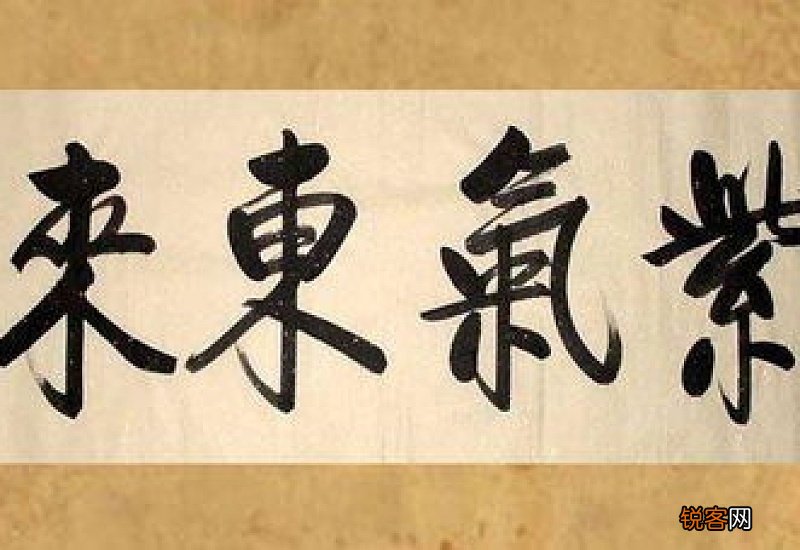 紫氣東來
锐客网